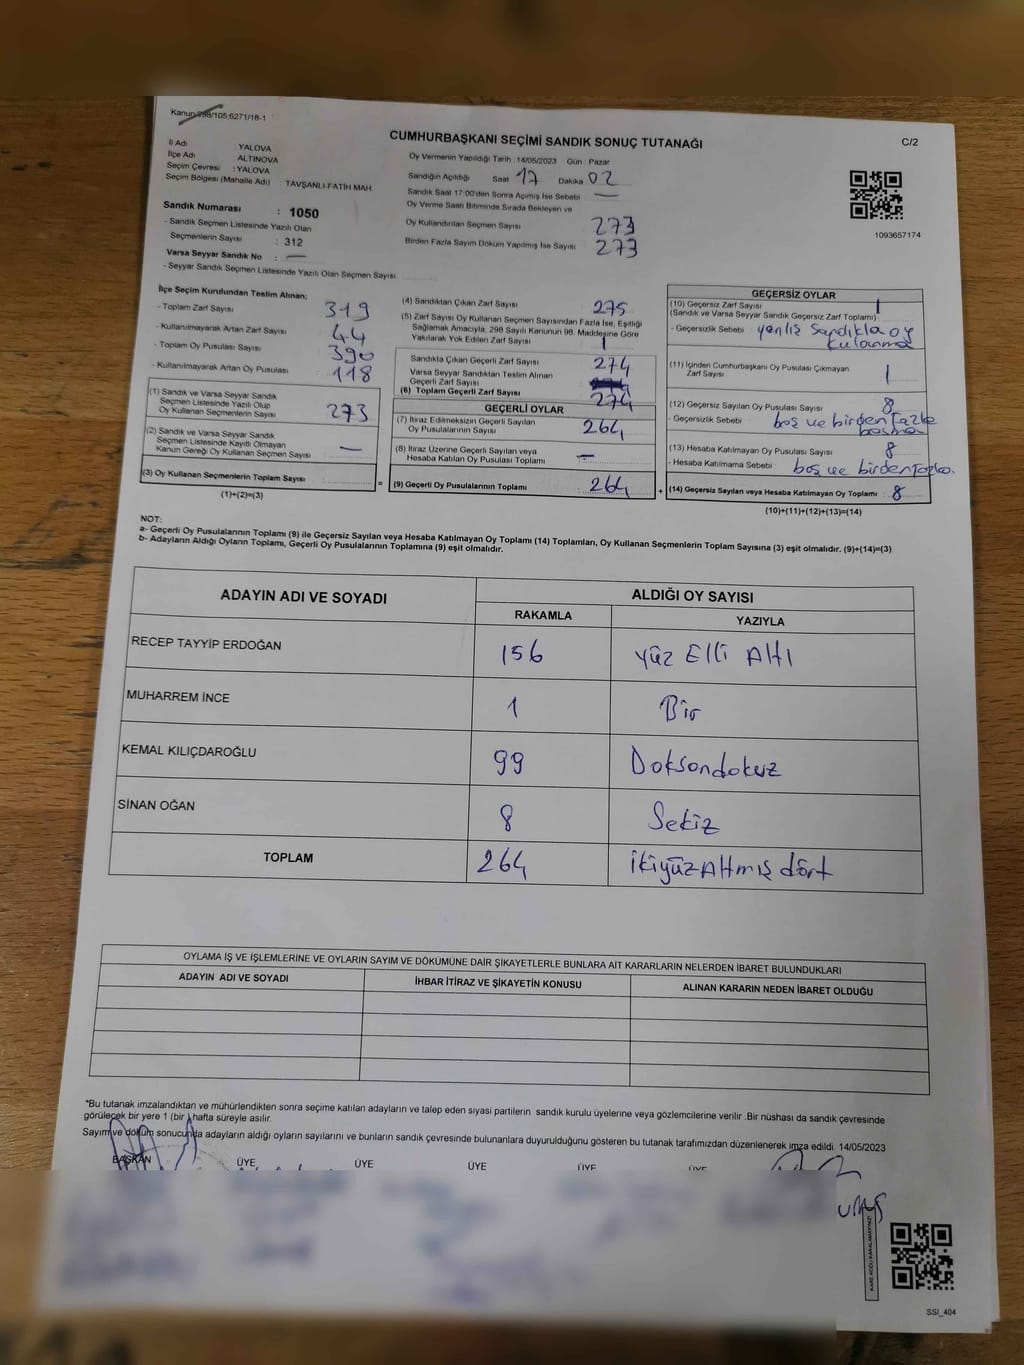 Kanun 298/105;6271/18-1
CUMHURBAŞKANI SEÇİMİ SANDIK SONUÇ TUTANAĞI
C/2
İl Adı YALOVA
İlçe Adı ALTINOVA
Seçim Çevresi : YALOVA
Seçim Bölgesi (Mahalle Adı) : TAVŞANLI-FATİH MAH.
Oy Vermenin Yapıldığı Tarih :14/05/2023 Gün : Pazar
Sandığın Açıldığı Saat 17 Dakika 02
Sandık Saat 17:00'den Sonra Açımış İse Sebebi —
Oy Verme Saati Bitiminde Sırada Bekleyen ve
Oy Kullandırılan Seçmen Sayısı 273
Birden Fazla Sayım Döküm Yapılmış İse Sayısı 273
1093657174
Sandık Numarası : 1050
- Sandık Seçmen Listesinde Yazılı Olan
Seçmenlerin Sayısı : 312
Varsa Seyyar Sandık No : —
- Seyyar Sandık Seçmen Listesinde Yazılı Olan Seçmen Sayısı
İlçe Seçim Kurulundan Teslim Alınan;
- Toplam Zarf Sayısı 319
- Kullanılmayarak Artan Zarf Sayısı 44
- Toplam Oy Pusulası Sayısı 390
- Kullanılmayarak Artan Oy Pusulası 118
(1) Sandık ve Varsa Seyyar Sandık
Seçmen Listesinde Yazılı Olup
Oy Kullanan Seçmenlerin Sayısı 273
(2) Sandık ve Varsa Seyyar Sandık
Seçmen Listesinde Kayıtlı Olmayan
Kanun Gereği Oy Kullanan Seçmen Sayısı —
(3) Oy Kullanan Seçmenlerin Toplam Sayısı =
(1)+(2)=(3)
(4) Sandıktan Çıkan Zarf Sayısı 275
(5) Zarf Sayısı Oy Kullanan Seçmen Sayısından Fazla İse, Eşitliği
Sağlamak Amacıyla, 298 Sayılı Kanunun 98. Maddesine Göre
Yakılarak Yok Edilen Zarf Sayısı 1
Sandıkta Çıkan Geçerli Zarf Sayısı 274
Varsa Seyyar Sandıktan Teslim Alınan
Geçerli Zarf Sayısı
(6) Toplam Geçerli Zarf Sayısı 274
GEÇERLİ OYLAR
(7) İtiraz Edilmeksizin Geçerli Sayılan
Oy Pusulalarının Sayısı 264
(8) İtiraz Üzerine Geçerli Sayılan veya
Hesaba Katılan Oy Pusulası Toplamı —
(9) Geçerli Oy Pusulalarının Toplamı 264 +
GEÇERSİZ OYLAR
(10) Geçersiz Zarf Sayısı 1
(Sandık ve Varsa Seyyar Sandık Geçersiz Zarf Toplamı)
- Geçersizlik Sebebi yanlış Sandıkla oy
kulanma
(11) İçinden Cumhurbaşkanı Oy Pusulası Çıkmayan
Zarf Sayısı 1
(12) Geçersiz Sayılan Oy Pusulası Sayısı 8
Geçersizlik Sebebi boş ve birden fazla
basma
(13) Hesaba Katılmayan Oy Pusulası Sayısı 8
- Hesaba Katılmama Sebebi boş ve birden fazla.
(14) Geçersiz Sayılan veya Hesaba Katılmayan Oy Toplamı : 8
(10)+(11)+(12)+(13)=(14)
NOT:
a- Geçerli Oy Pusulalarının Toplamı (9) ile Geçersiz Sayılan veya Hesaba Katılmayan Oy Toplamı (14) Toplamları, Oy Kullanan Seçmenlerin Toplam Sayısına (3) eşit olmalıdır. (9)+(14)=(3)
b- Adayların Aldığı Oyların Toplamı, Geçerli Oy Pusulalarının Toplamına (9) eşit olmalıdır.
ADAYIN ADI VE SOYADI ALDIĞI OY SAYISI
RAKAMLA YAZIYLA
RECEP TAYYİP ERDOĞAN 156 Yüz Elli Altı
MUHARREM İNCE 1 Bir
KEMAL KILIÇDAROĞLU 99 Doksandokuz
SİNAN OĞAN 8 Sekiz
TOPLAM 264 ikiyüzAltmış dört
OYLAMA İŞ VE İŞLEMLERİNE VE OYLARIN SAYIM VE DÖKÜMÜNE DAİR ŞİKAYETLERLE BUNLARA AİT KARARLARIN NELERDEN İBARET BULUNDUKLARI
ADAYIN ADI VE SOYADI İHBAR İTİRAZ VE ŞİKAYETİN KONUSU ALINAN KARARIN NEDEN İBARET OLDUĞU
*Bu tutanak imzalandıktan ve mühürlendikten sonra seçime katılan adayların ve talep eden siyasi partilerin sandık kurulu üyelerine veya gözlemcilerine verilir .Bir nüshası da sandık çevresinde
görülecek bir yere 1 (bir ) hafta süreyle asılır.
Sayım ve döküm sonucunda adayların aldığı oyların sayılarını ve bunların sandık çevresinde bulunanlara duyurulduğunu gösteren bu tutanak tarafımızdan düzenlenerek imza edildi. 14/05/2023
BAŞKAN ÜYE ÜYE ÜYE ÜYE ÜYE
SSI_404